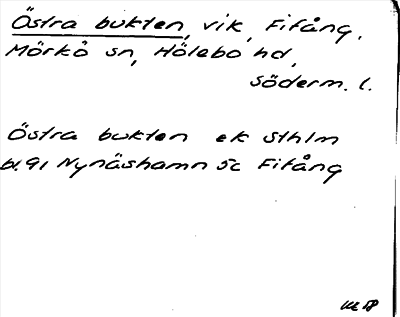 Östra bukten, vik, Fifång,
Mörkö sn, Hölebo hd,
Söderm. l.
Östra bukten ek Sthlm
bl. 91 Nynäshamn 5c Fifång